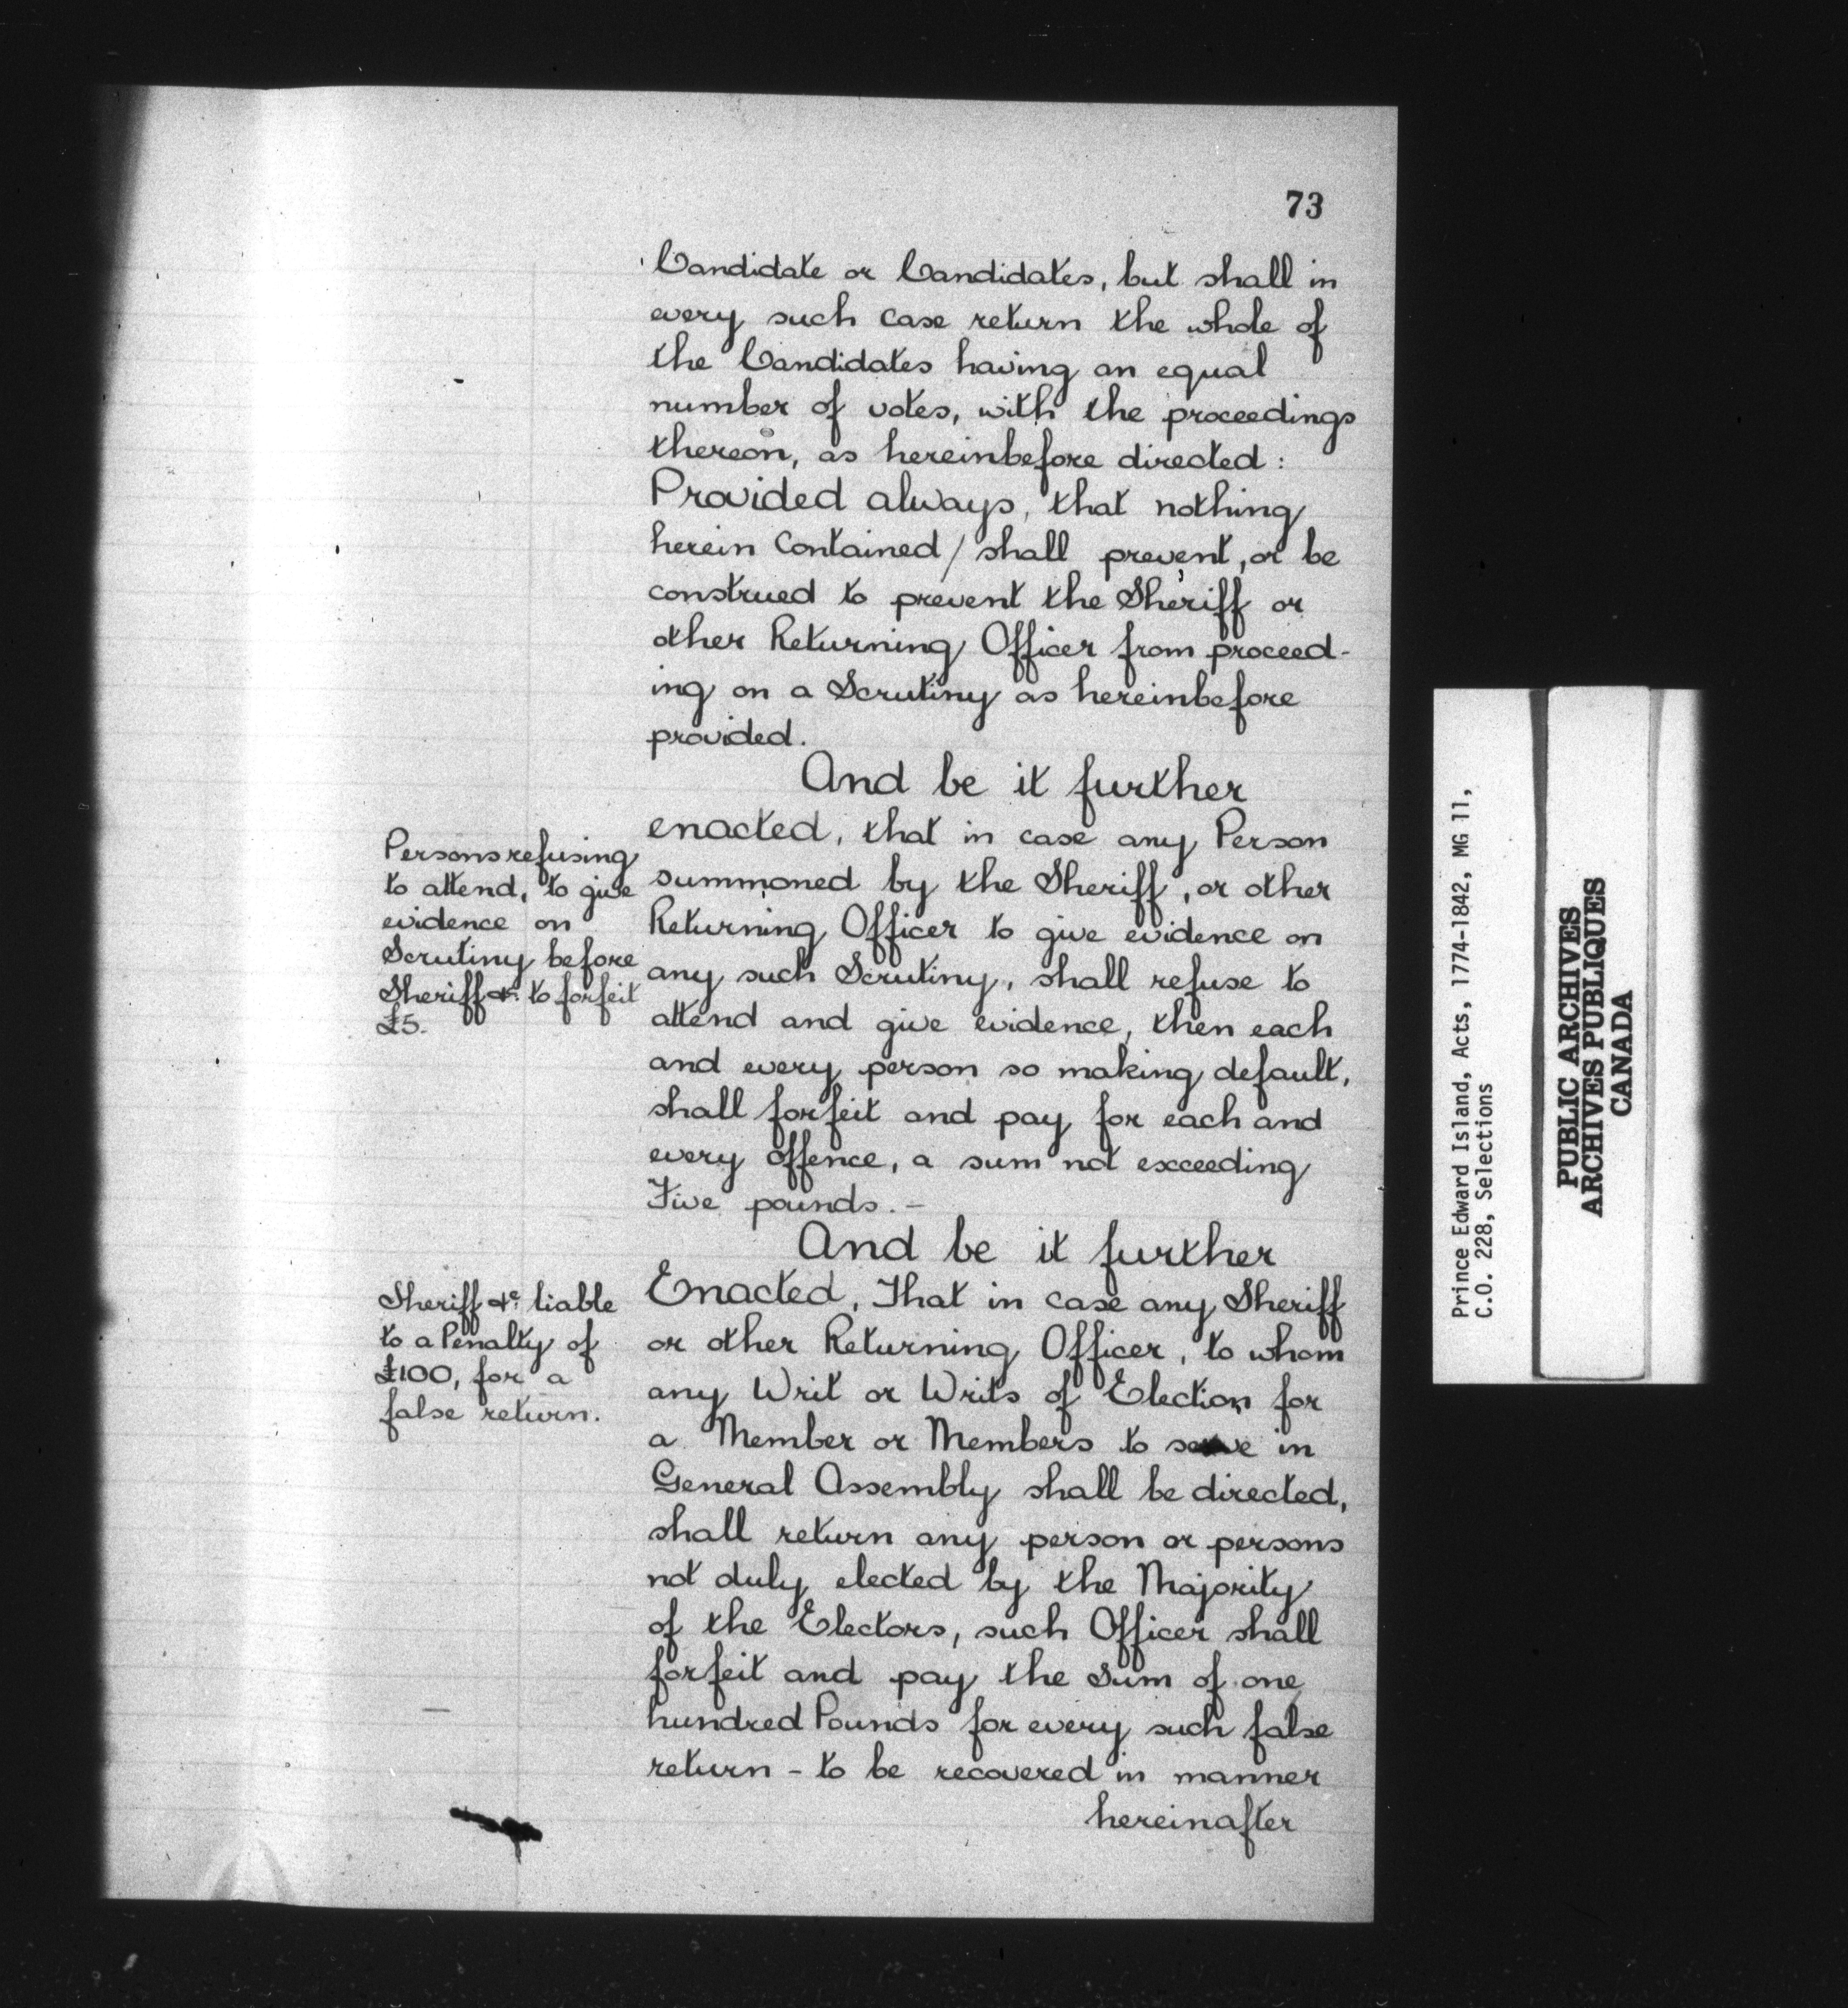 73
Candidate or Candidates, but shall in
every such case return the whole of
the Candidates having an equal
number of votes, with the proceedings
thereon, as hereinbefore directed:
Provided always, that nothing
herein contained / shall prevent, or be
construed to prevent the Sheriff or
other Returning Officer from proceed-
ing on a Scrutiny as hereinbefore
provided.
And be it further
enacted, that in case any Person
summoned by the Sheriff, or other
Returning Officer to give evidence on
any such Scrutiny, shall refuse to
attend and give evidence, then each
and every person so making default,
shall forfeit and pay for each and
every offence, a sum not exceeding
Five pounds. -
Persons refusing
to attend, to give
evidence on
Scrutiny before
Sheriff &c to forfeit
£5.
And be it further
Enacted, That in case any Sheriff
or other Returning Officer, to whom
any Writ or Writs of Election for
a Member or Members to serve in
General Assembly shall be directed,
shall return any person or persons
not duly elected by the Majority
of the Electors, such Officer shall
forfeit and pay the sum of one
hundred Pounds for every such false
return - to be recovered in manner
hereinafter
Sheriff &c liable
to a Penalty of
£100, for a
false return.
Prince Edward Island, Acts, 1774-1842, MG 11,
C.O. 228, Selections
PUBLIC ARCHIVES
ARCHIVES PUBLIQUES
CANADA